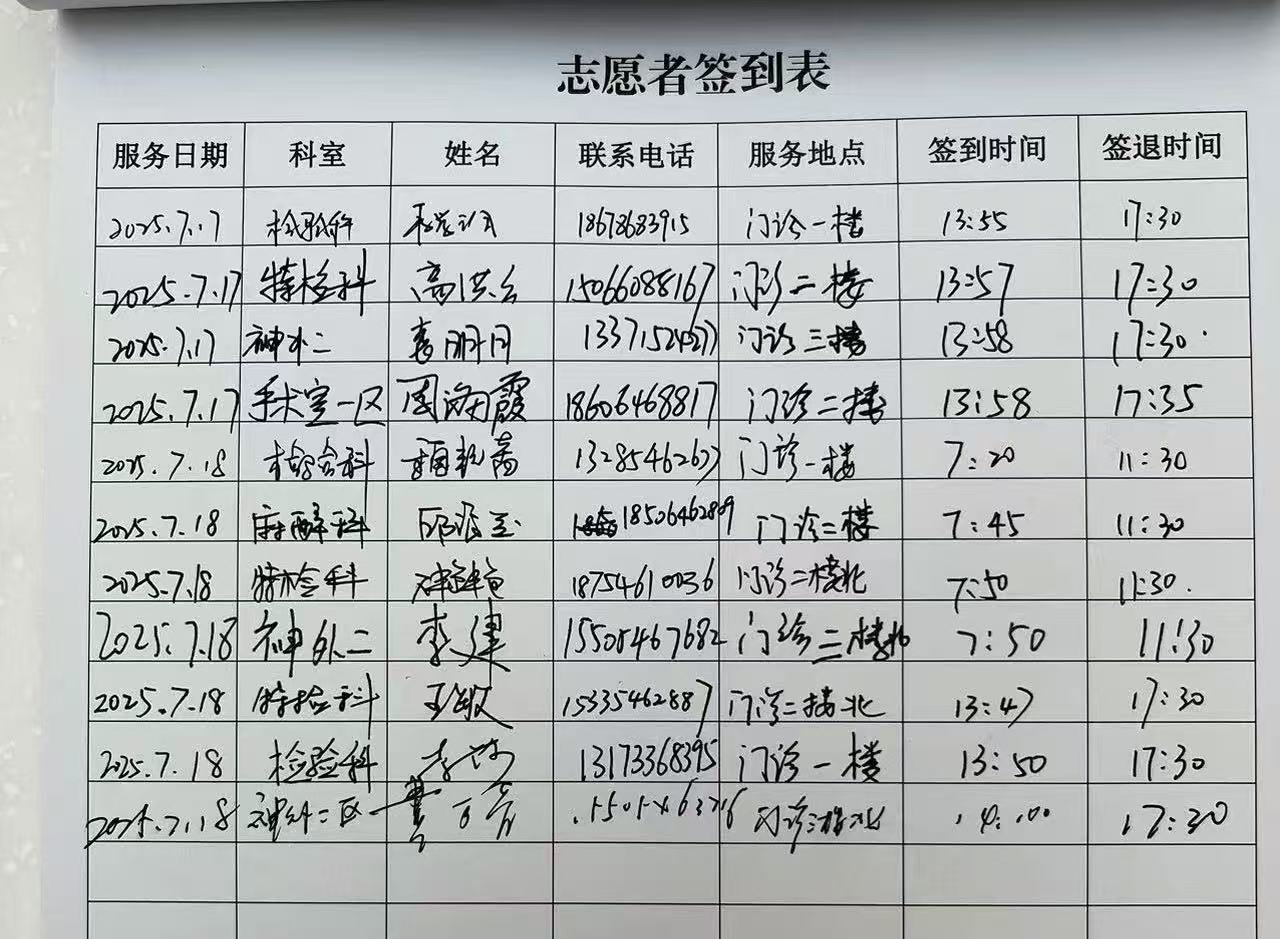 志愿者签到表
服务日期 科室 姓名 联系电话 服务地点 签到时间 签退时间
2025.7.17 检验科 18678683915 门诊一楼 13:55 17:30
2025.7.17 特检科 高洪云 15066088167 门诊二楼 13:57 17:30
2025.7.17 神外二 门诊三楼 13:58 17:30
2025.7.17 手术室一区 周海霞 18606468817 门诊二楼 13:58 17:35
2025.7.18 检验科 门诊一楼 7:20 11:30
2025.7.18 麻醉科 门诊二楼 7:45 11:30
2025.7.18 特检科 18754610036 门诊二楼北 7:50 11:30
2025.7.18 神外二 李建 15505467682 门诊三楼北 7:50 11:30
2025.7.18 特检科 王敏 15335462887 门诊二楼北 13:47 17:30
2025.7.18 检验科 13173368395 门诊一楼 13:50 17:30
2025.7.18 17:30